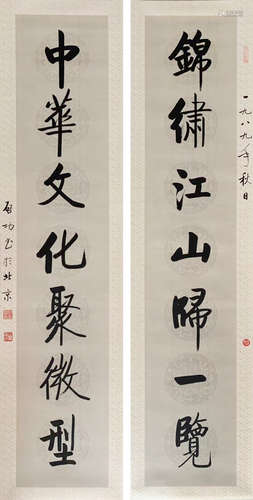 一九八九年秋日
錦繡江山歸一覽
中華文化聚微型
啟功書於北京